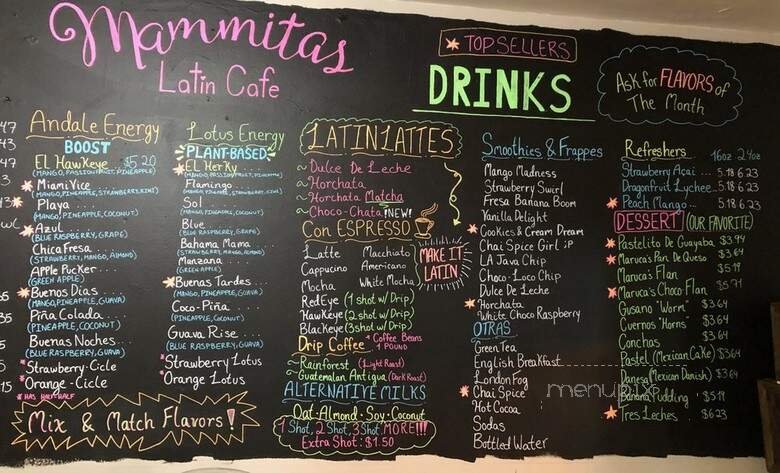 Mammitas
Latin Cafe
* TOP SELLERS
DRINKS
Ask for FLAVORS of
The Month
Andale Energy
BOOST
EL HawKeye $5.20
(MANGO, PASSIONFRUIT, PINEAPPLE)
Miami Vice
(MANGO, PINEAPPLE, STRAWBERRY, KIWI)
Playa
(MANGO, PINEAPPLE, COCONUT)
Azul
(BLUE RASPBERRY, GRAPE)
Chica Fresa
(STRAWBERRY, MANGO, ALMOND)
Apple Pucker...
(GREEN APPLE)
Buenos Dias
(MANGO, PINEAPPLE, GUAVA)
Piña Colada
(PINEAPPLE, COCONUT)
Buenas Noches
(BLUE RASPBERRY, GUAVA)
*Strawberry-Cicle
*Orange-Cicle
* HAS HALF HALF
Mix & Match Flavors!
Lotus Energy
PLANT-BASED
EL HerKy
(MANGO, PASSION FRUIT, PINEAPPLE)
Flamingo...
(MANGO, PINEAPPLE, STRAWBERRY, KIWI)
Sol
(MANGO, PINEAPPLE, COCONUT)
Blue
(BLUE RASPBERRY, GRAPE)
Bahama Mama
(STRAWBERRY, MANGO, ALMOND)
Manzana
(GREEN APPLE)
Buenas Tardes...
(MANGO, PINEAPPLE, GUAVA)
Coco-Piña
(PINEAPPLE, COCONUT)
Guava Rise...
(BLUE RASPBERRY, GUAVA)
*Strawberry Lotus
*Orange Lotus
LATIN LATTES
~ Dulce De Leche
~ Horchata
~ Horchata Matcha
~ Choco-Chata NEW!
Con ESPRESSO
Latte Macchiato
Cappucino Americano
Mocha White Mocha
RedEye (1 shot w/ Drip)
HawKeye (2 shot w/ Drip)
BlacKeye (3 shot w/ Drip)
MAKE IT
LATIN
Drip Coffee * Coffee Beans
1 POUND
~ Rainforest (Light Roast)
~ Guatemalan Antigua (Dark Roast)
ALTERNATIVE MILKS
Oat · Almond · Soy · Coconut
1 Shot, 2 Shot, 3 Shot, MORE!!!
Extra Shot: $1.50
Smoothies & Frappes
Mango Madness
Strawberry Swirl
Fresa Banana Boom
Vanilla Delight
Cookies & Cream Dream
Chai Spice Girl :P
LA Java Chip
Choco-Loco Chip
Dulce De Leche
Horchata
White Choco Raspberry
OTRAS
Green Tea
English Breakfast
London Fog
Chai Spice
Hot Cocoa
Sodas
Bottled Water
Refreshers 16oz 24oz
Strawberry Açai... 5.18 6.23
Dragonfruit Lychee.. 5.18 6.23
Peach Mango... 5.18 6.23
DESSERT (OUR FAVORITE)
Pastelito De Guayaba $3.94
Maruca's Pan De Queso $3.64
Maruca's Flan $5.19
Maruca's Choco-Flan $5.71
Gusano "Worm" $3.64
Cuernos "Horns" $3.64
Conchas $3.64
Pastel (Mexican Cake) $3.64
Danesa (Mexican Danish) $3.64
Banana Pudding $5.19
Tres Leches $6.23